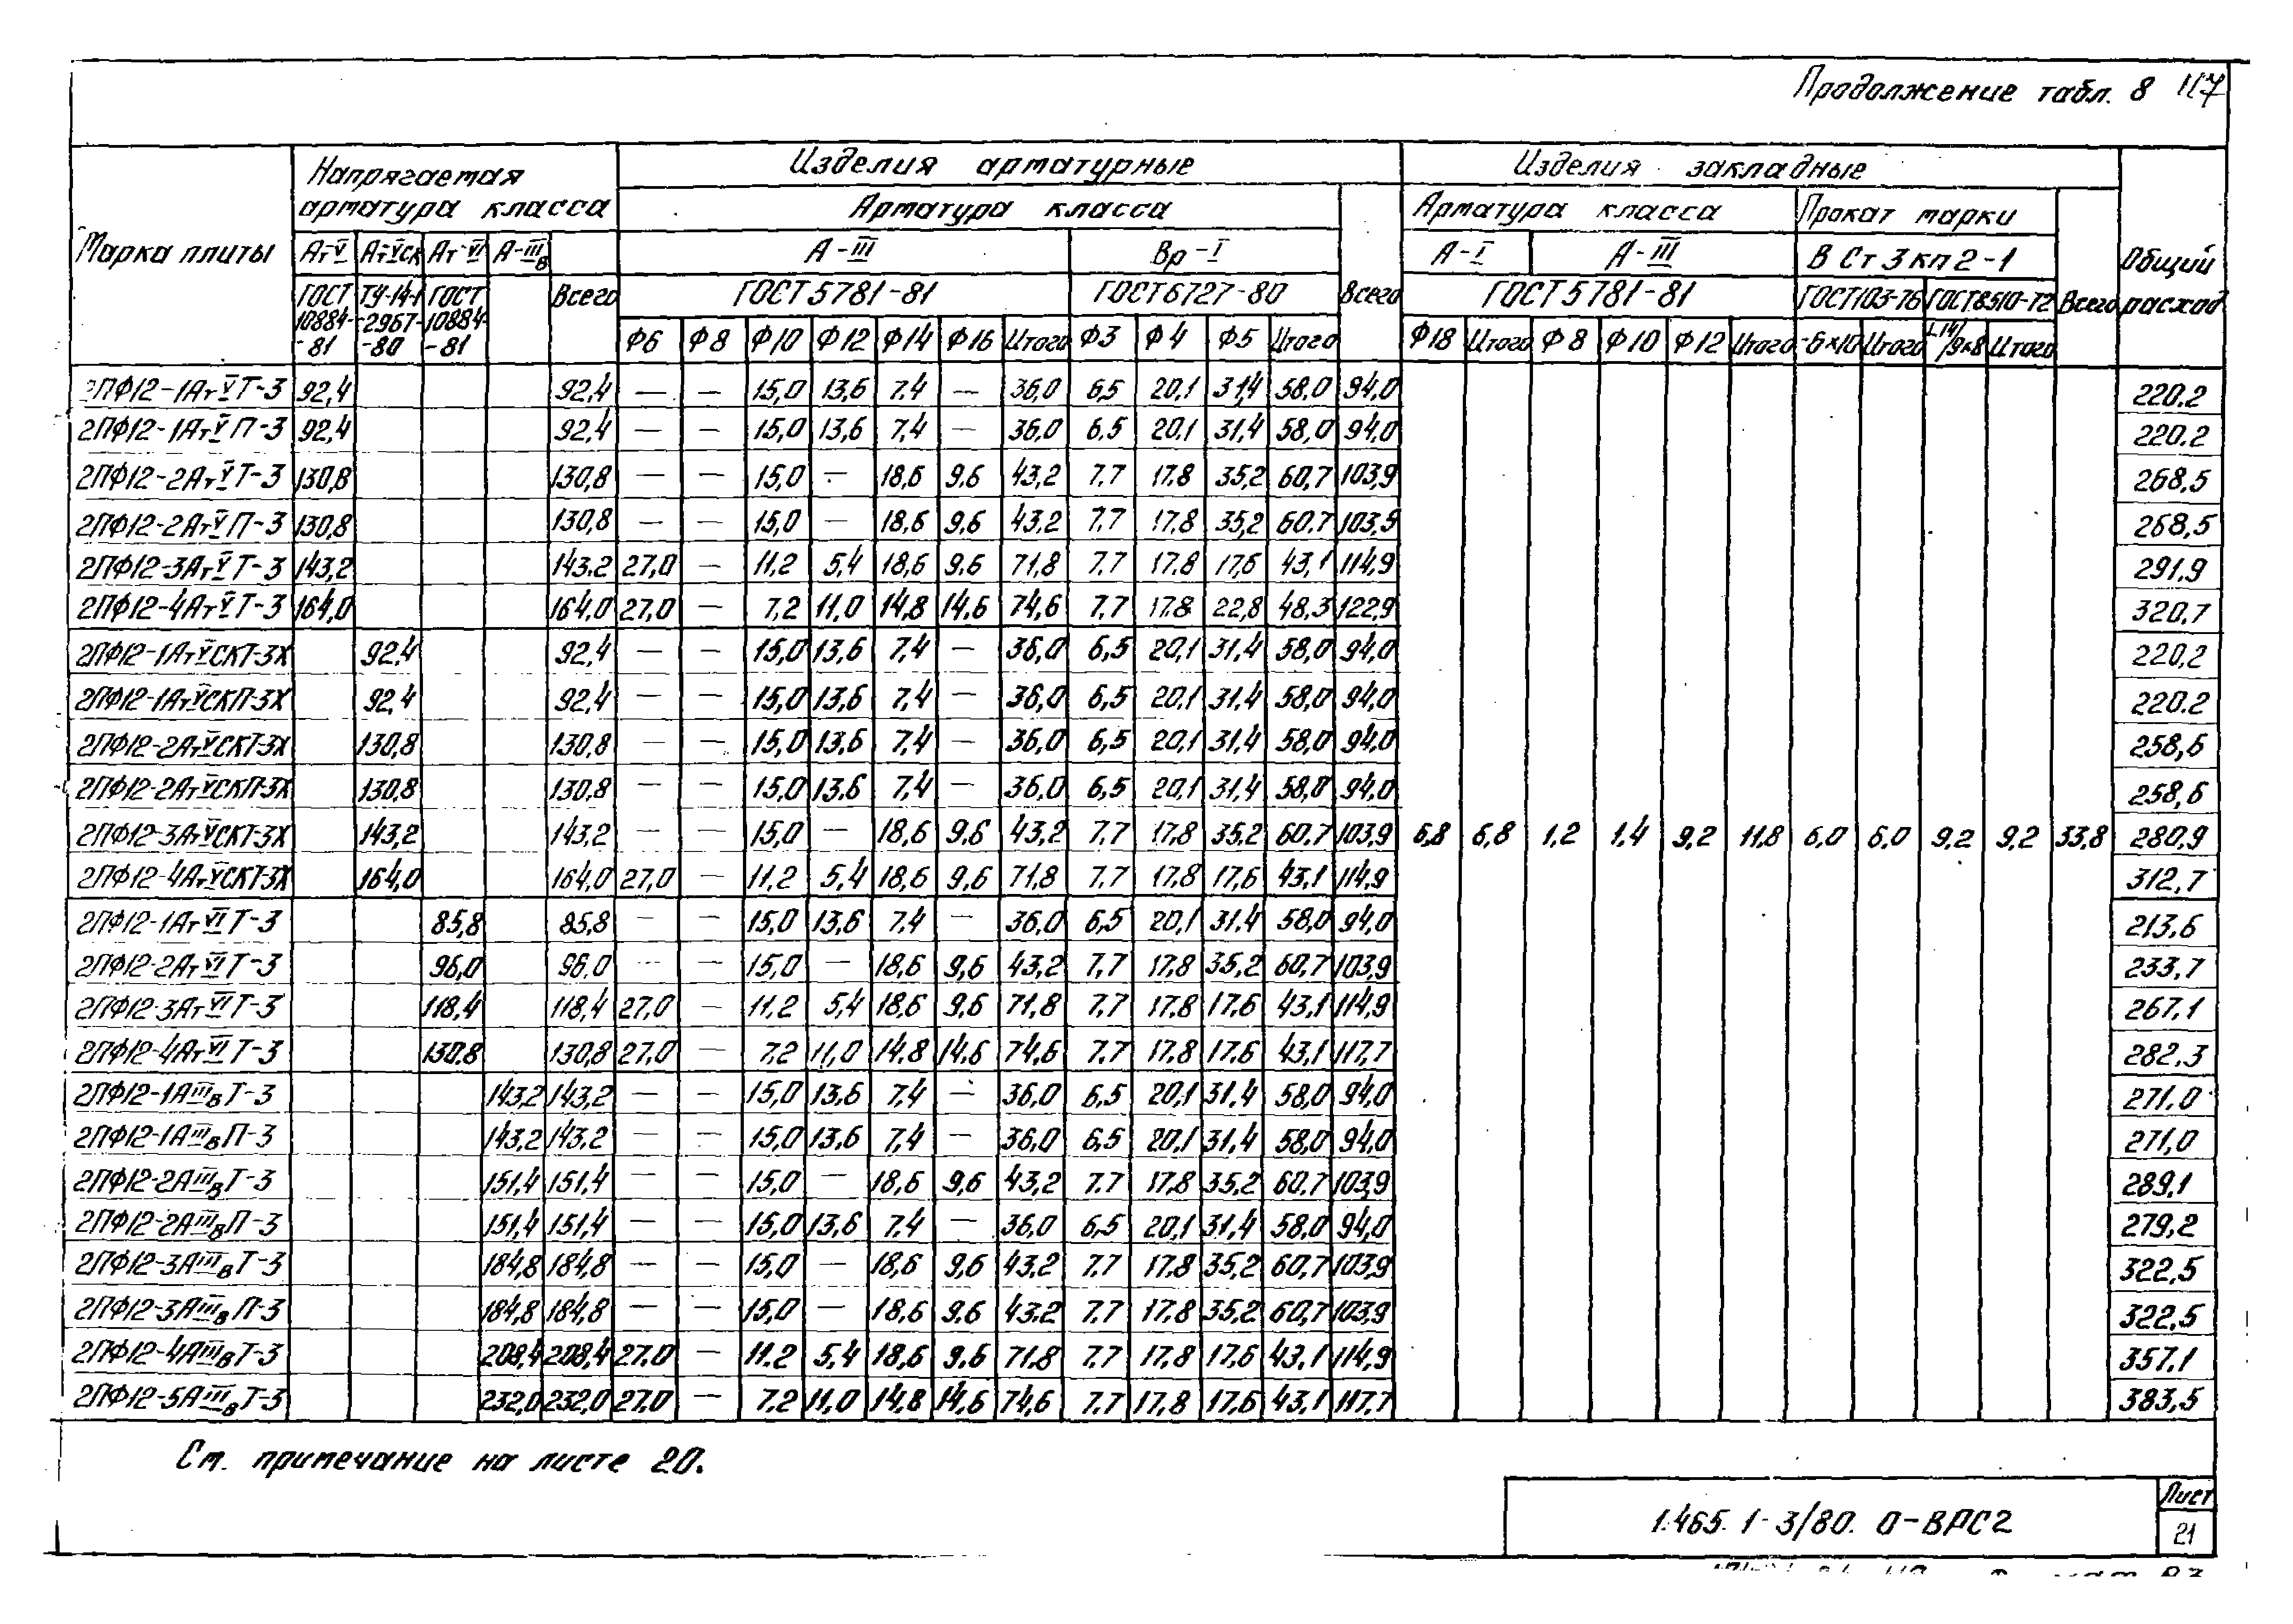 Продолжение табл. 8 117
Марка плиты
Напрягаемая арматура класса
Изделия арматурные
Изделия закладные
Общий расход
Арматура класса
Всего
Арматура класса
Прокат марки
Всего
Ат-V Ат-VСК Ат-VI А-IIIв Всего
А-III Вр-I
А-I А-III
ВСт3кп2-1
ГОСТ 10884-81 ТУ-14-1-2967-80 ГОСТ 10884-81
ГОСТ 5781-81 ГОСТ 6727-80
ГОСТ 5781-81
ГОСТ103-76 ГОСТ8510-72
Ф6 Ф8 Ф10 Ф12 Ф14 Ф16 Итого Ф3 Ф4 Ф5 Итого
Ф18 Итого Ф8 Ф10 Ф12 Итого -6×10 Итого Итого
2ПФ12-1АтVТ-3 92,4 92,4 — — 15,0 13,6 7,4 — 36,0 6,5 20,1 31,4 58,0 94,0 220.2
2ПФ12-1АтVП-3 92,4 92,4 — — 15,0 13,6 7,4 — 36,0 6,5 20,1 31,4 58,0 94,0 220.2
2ПФ12-2АтVТ-3 130,8 130,8 — — 15,0 — 18,6 9,6 43,2 7,7 17,8 35,2 60,7 103,9 268,5
2ПФ12-2АтVП-3 130,8 130,8 — — 15,0 — 18,6 9,6 43,2 7,7 17,8 35,2 60,7 103,9 268,5
2ПФ12-3АтVТ-3 143,2 143,2 27,0 — 11,2 5,4 18,6 9,6 71,8 7,7 17,8 17,6 43,1 114,9 291,9
2ПФ12-4АтVТ-3 164,0 164,0 27,0 — 7,2 11,0 14,8 14,6 74,6 7,7 17,8 22,8 48,3 122,9 320,7
2ПФ12-1АтVСКТ-3Х 92,4 92,4 — — 15,0 13,6 7,4 — 36,0 6,5 20,1 31,4 58,0 94,0 220,2
2ПФ12-1АтVСКП-3Х 92,4 92,4 — — 15,0 13,6 7,4 — 36,0 6,5 20,1 31,4 58,0 94,0 220.2
2ПФ12-2АтVСКТ-3Х 130,8 130,8 — — 15,0 13,6 7,4 — 36,0 6,5 20,1 31,4 58,0 94,0 258,6
2ПФ12-2АтVСКП-3Х 130,8 130,8 — — 15,0 13,6 7,4 — 36,0 6,5 20,1 31,4 58,0 94,0 258,6
2ПФ12-3АтVСКТ-3Х 143,2 143,2 — — 15,0 — 18,6 9,6 43,2 7,7 17,8 35,2 60,7 103,9 6,8 6,8 1,2 1,4 9,2 11,8 6,0 6,0 9,2 9,2 33,8 280,9
2ПФ12-4АтVСКТ-3Х 164,0 164,0 27,0 — 11,2 5,4 18,6 9,6 71,8 7,7 17,8 17,6 43,1 114,9 312,7
2ПФ12-1АтVIТ-3 85,8 85,8 — — 15,0 13,6 7,4 — 36,0 6,5 20,1 31,4 58,0 94,0 213,6
2ПФ12-2АтVIТ-3 96,0 96,0 — — 15,0 — 18,6 9,6 43,2 7,7 17,8 35,2 60,7 103,9 233,7
2ПФ12-3АтVIТ-3 118,4 118,4 27,0 — 11,2 5,4 18,6 9,6 71,8 7,7 17,8 17,6 43,1 114,9 267,1
2ПФ12-4АтVIТ-3 130,8 130,8 27,0 — 7,2 11,0 14,8 14,6 74,6 7,7 17,8 17,6 43,1 117,7 282,3
2ПФ12-1АIIIвТ-3 143,2 143,2 — — 15,0 13,6 7,4 — 36,0 6,5 20,1 31,4 58,0 94,0 271,0
2ПФ12-1АIIIвП-3 143,2 143,2 — — 15,0 13,6 7,4 — 36,0 6,5 20,1 31,4 58,0 94,0 271,0
2ПФ12-2АIIIвТ-3 151,4 151,4 — — 15,0 — 18,6 9,6 43,2 7,7 17,8 35,2 60,7 103,9 289,1
2ПФ12-2АIIIвП-3 151,4 151,4 — — 15,0 13,6 7,4 — 36,0 6,5 20,1 31,4 58,0 94,0 279,2
2ПФ12-3АIIIвТ-3 184,8 184,8 — — 15,0 — 18,6 9,6 43,2 7,7 17,8 35,2 60,7 103,9 322,5
2ПФ12-3АIIIвП-3 184,8 184,8 — — 15,0 — 18,6 9,6 43,2 7,7 17,8 35,2 60,7 103,9 322,5
2ПФ12-4АIIIвТ-3 208,4 208,4 27,0 — 11,2 5,4 18,6 9,6 71,8 7,7 17,8 17,6 43,1 114,9 357,1
2ПФ12-5АIIIвТ-3 232,0 232,0 27,0 — 7,2 11,0 14,8 14,6 74,6 7,7 17,8 17,6 43,1 117,7 383,5
См. примечание на листе 20.
1.465.1-3/80. 0-ВРС2
Лист
21